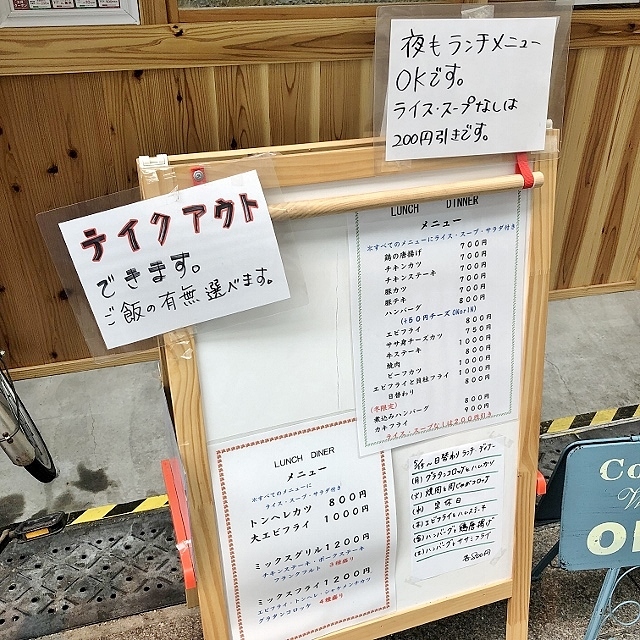 夜もランチメニュー
OKです。
ライス・スープなしは
200円引きです。
テイクアウト
できます。
ご飯の有無選べます。
LUNCH DINNER
メニュー
※すべてのメニューにライス・スープ・サラダ付き
鶏の唐揚げ 700円
チキンカツ 700円
チキンステーキ 700円
豚カツ 700円
豚テキ 800円
ハンバーグ
(+50円チーズONorIN)
エビフライ 800円
ササ身チーズカツ 750円
牛ステーキ 1000円
焼肉 800円
ビーフカツ 1000円
エビフライと貝柱フライ 1000円
日替わり 800円
(冬限定)
煮込みハンバーグ 800円
カキフライ 900円
ライス・スープなしは200円引き
LUNCH DINER
メニュー
※すべてのメニューに
ライス・スープ・サラダ付き
トンヘレカツ 800円
大エビフライ 1000円
ミックスグリル 1200円
チキンステーキ・ポークステーキ
フランクフルト 3種盛り
ミックスフライ 1200円
エビフライ・トンヘレ・シャケメンチカツ
グラタンコロッケ 4種盛り
日替りランチ ディナー
(月) グラタンコロッケとハンカツ
(火) 焼肉と肉じゃがコロッケ
(水) 定休日
(木) エビフライと
(金) ハンバーグと鶏唐揚げ
(土) ハンバーグとササミフライ
各800円
Co